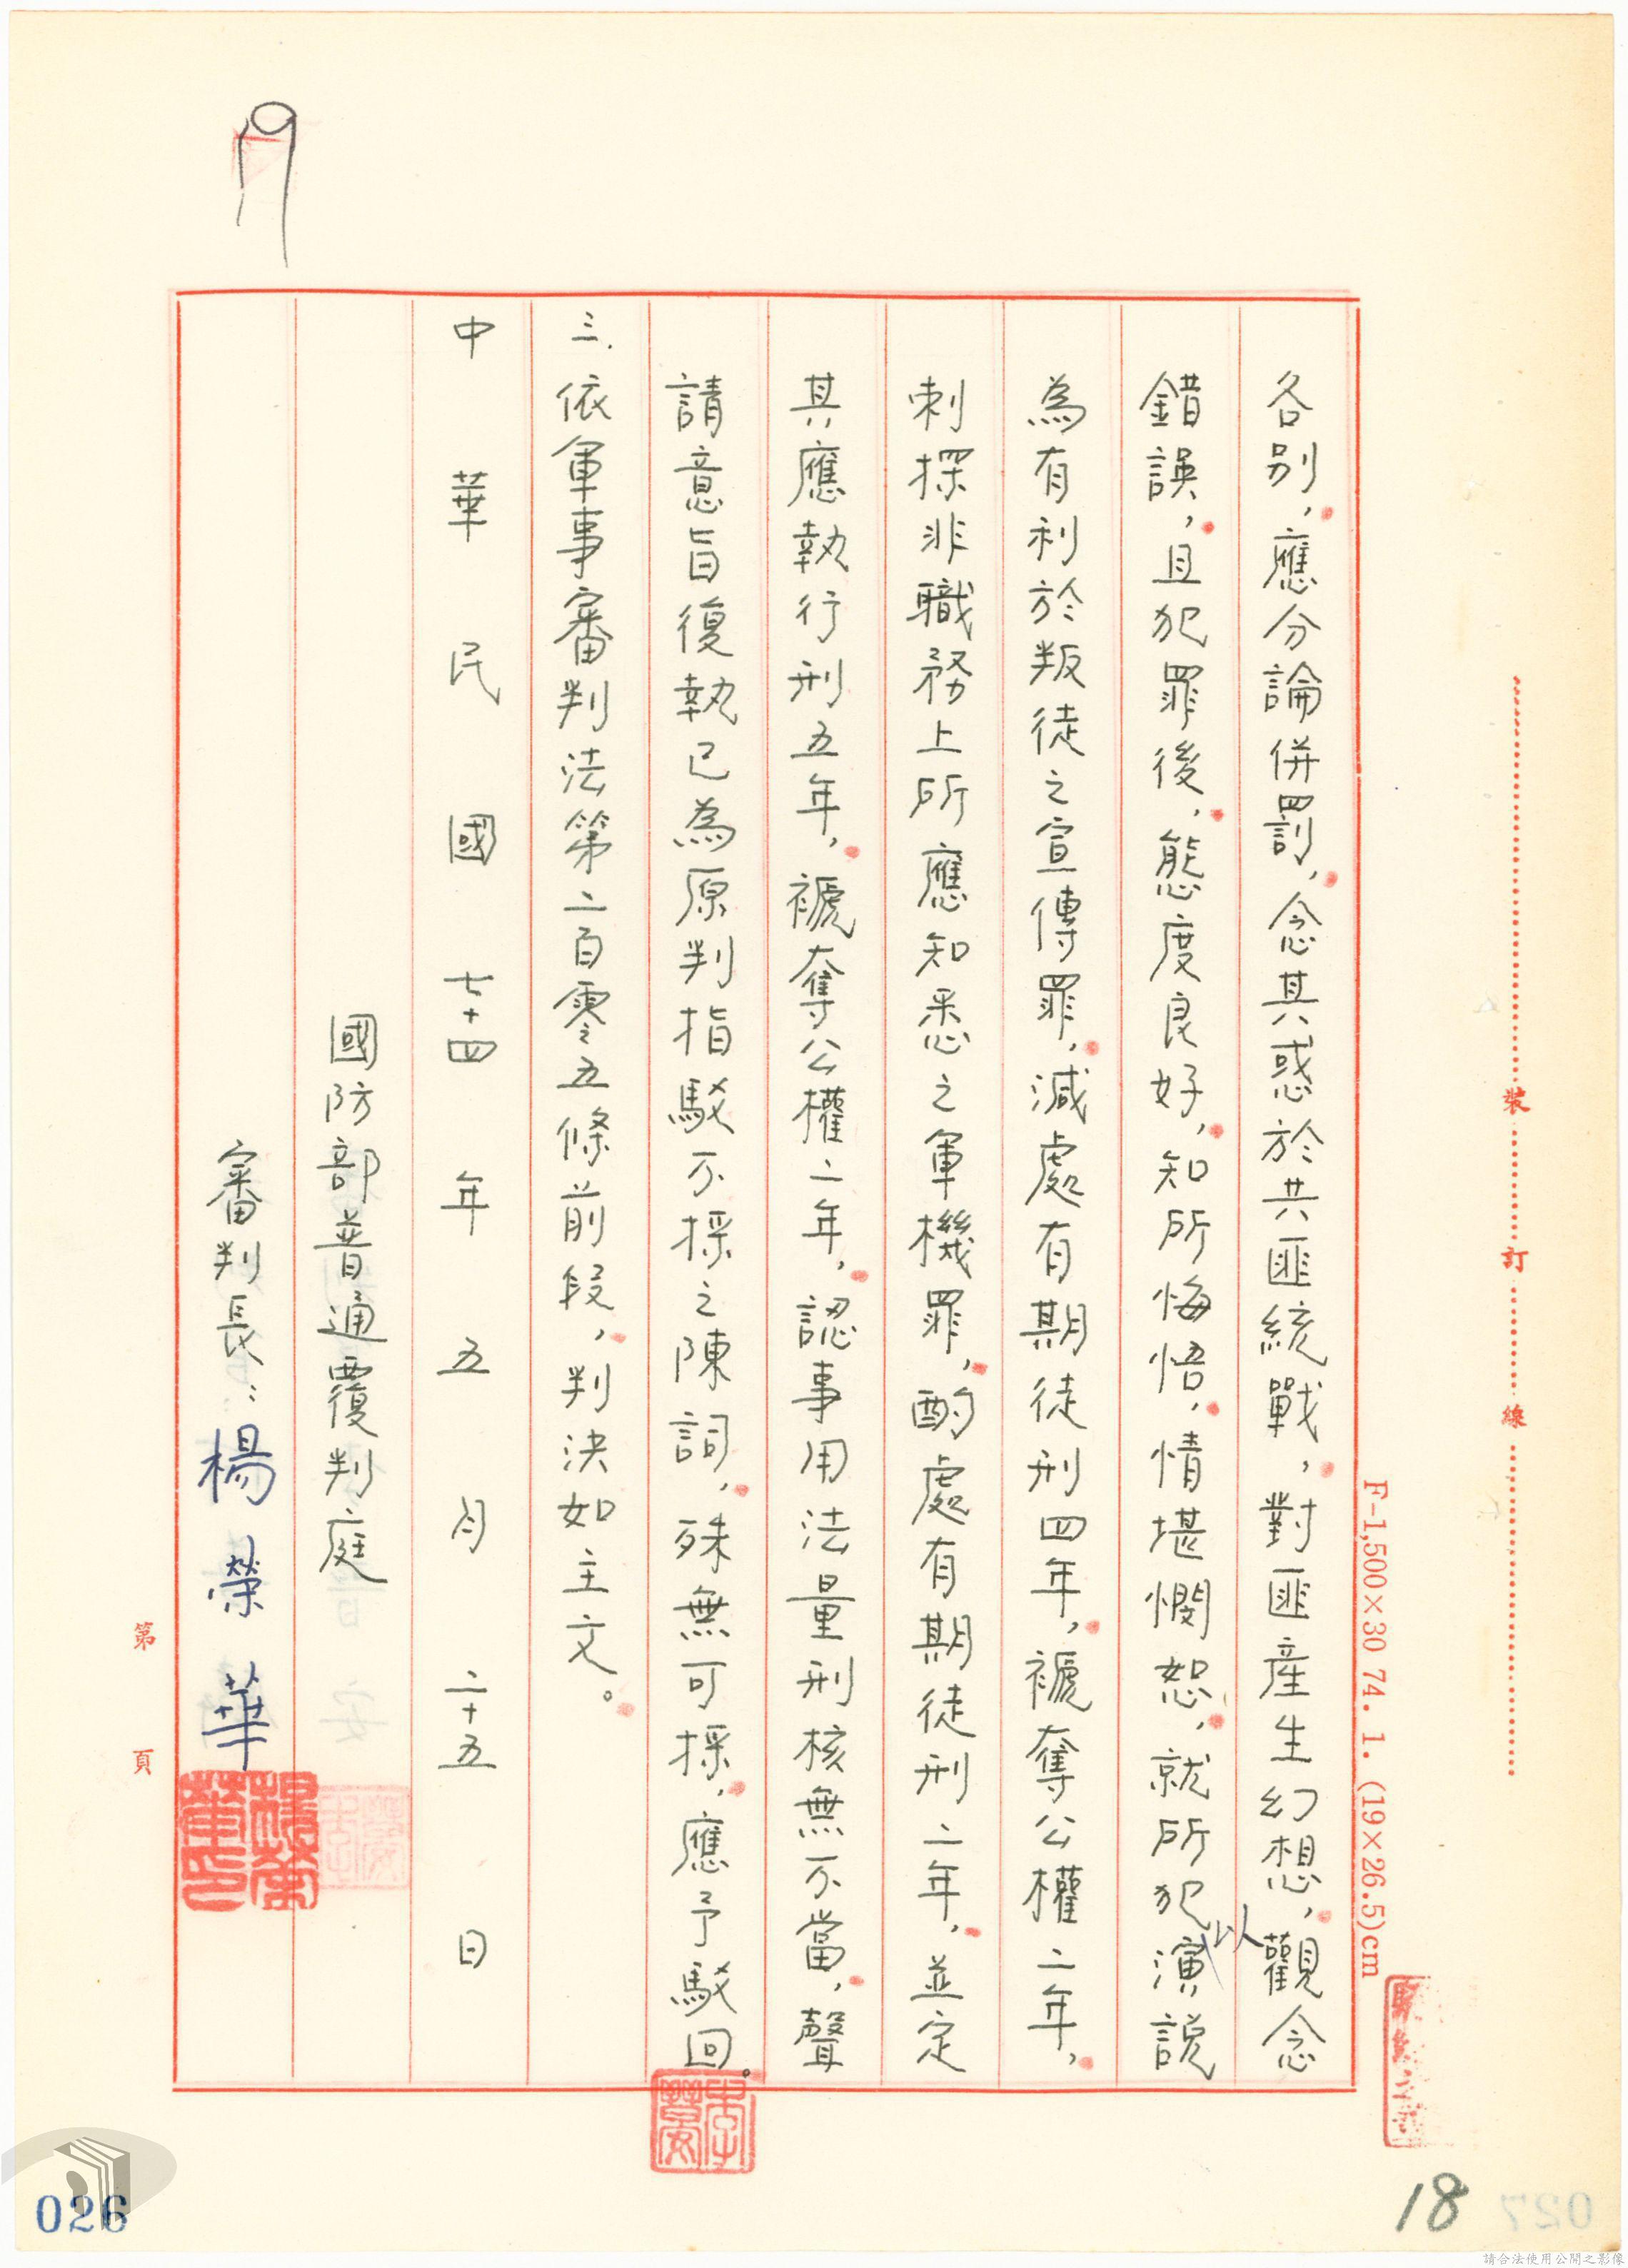 各別，應分論併罰，念其惑於共匪統戰，對匪產生幻想，觀念
錯誤，且犯罪後，態度良好，知所悔悟，情堪憫恕，就所犯以演說
為有利於叛徒之宣傳罪，減處有期徒刑四年，褫奪公權二年，
刺探非職務上所應知悉之軍機罪，酌處有期徒刑二年，並定
其應執行刑五年，褫奪公權二年，認事用法量刑核無不當，聲
請意旨復執已為原判指駁不採之陳詞，殊無可採，應予駁回。
三.依軍事審判法第二百零五條前段，判決如主文。
中華民國七十四年五月二十五日
國防部普通覆判庭
審判長：楊榮華
楊榮華印
第 頁
裝 訂 線
F-1,500×30 74. 1. (19×26.5)cm
18
026
027
請合法使用公開之影像